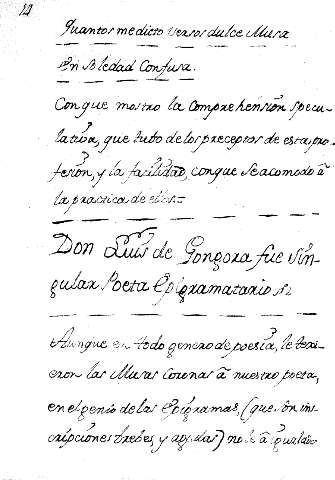 14
Quantos me dicto versos dulce Musa
En soledad Confusa.
Con que mostro la Comprehension specu-
lativa, que tubo de los preceptos de esta pro-
fesion, y la facilidad, con que se acomodó â
la practica de ellos.
Don Luis de Gongora fue Sin-
gular Poeta Epigramatario
Aunque en todo genero de poesia, le texi-
eron las Musas Coronas â nuestro poeta,
en el genio de las Epigramas, (que son ins-
cripciones brebes y agudas) no le â igualado